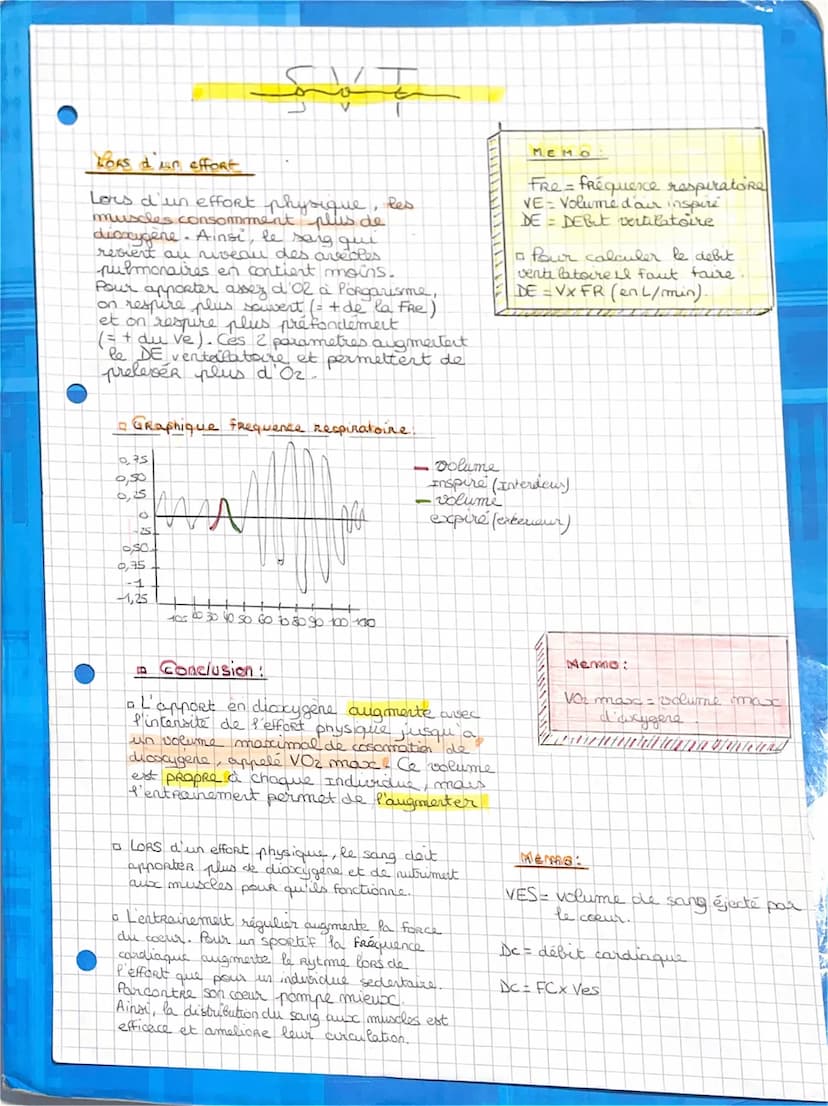 SVT
Lors d'un effort
Lors d'un effort physique, les
muscles consomment plus de
dioxygène. Ainsi, le sang qui
revient au niveau des avéoles
pulmonaires en contient moins.
Pour apporter assez d'O2 à l'organisme,
on respire plus souvent (= + de la FRe)
et on respire plus préfondement
(= + du Ve). Ces 2 parametres augmentent
le DE ventailatoire et permettent de
prelever plus d'O2.
MEMO:
FRe = fréquence respiratoire
VE = Volume d'air inspiré
DE = DEBit ventilatoire
Pour calculer le debit
ventilatoire il faut faire.
DE = V x FR (en L/min).
Graphique frequence respiratoire:
0,75
0,50
0,25
0
-25
0,50
0,75
-1
-1,25
30 40 50 60 70 80 90 100
volume
inspiré (Interieus)
volume
expiré (exterieur)
Conclusion:
L'apport en dioxygène augmente avec
l'intensité de l'effort physique jusqu'a
un volume maximal de cosomation de
dioxygène, appelé VO2 max. Ce volume
est propre à chaque individue, mais
l'entrainement permet de l'augmenter
Memo:
VO2 max = volume max
d'oxygène
Lors d'un effort physique, le sang doit
apporter plus de dioxygène et de nutriment
aux muscles pour qu'ils fonctionne.
L'entrainement régulier augmente la force
du coeur. Pour un sportif la fréquence
cardiaque augmente le Rytme lors de
l'effort que pour un individue sedentaire.
Parcontre son coeur pompe mieux.
Ainsi, la distribution du sang aux muscles est
efficace et ameliore leur circulation.
Memo:
VES = volume de sang éjecté par
le coeur.
Dc = débit cardiaque
Dc = FC x Ves